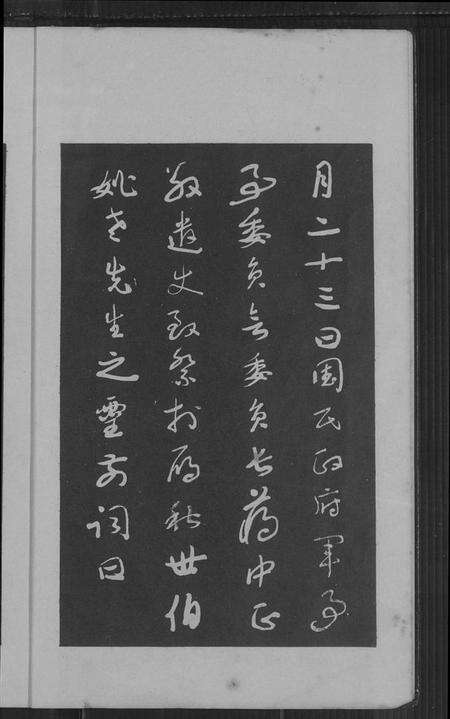 月二十三日國民政府軍事
委員會委員長蔣中正
敬遣史致祭於雁秋世伯
姚老先生之靈前詞曰